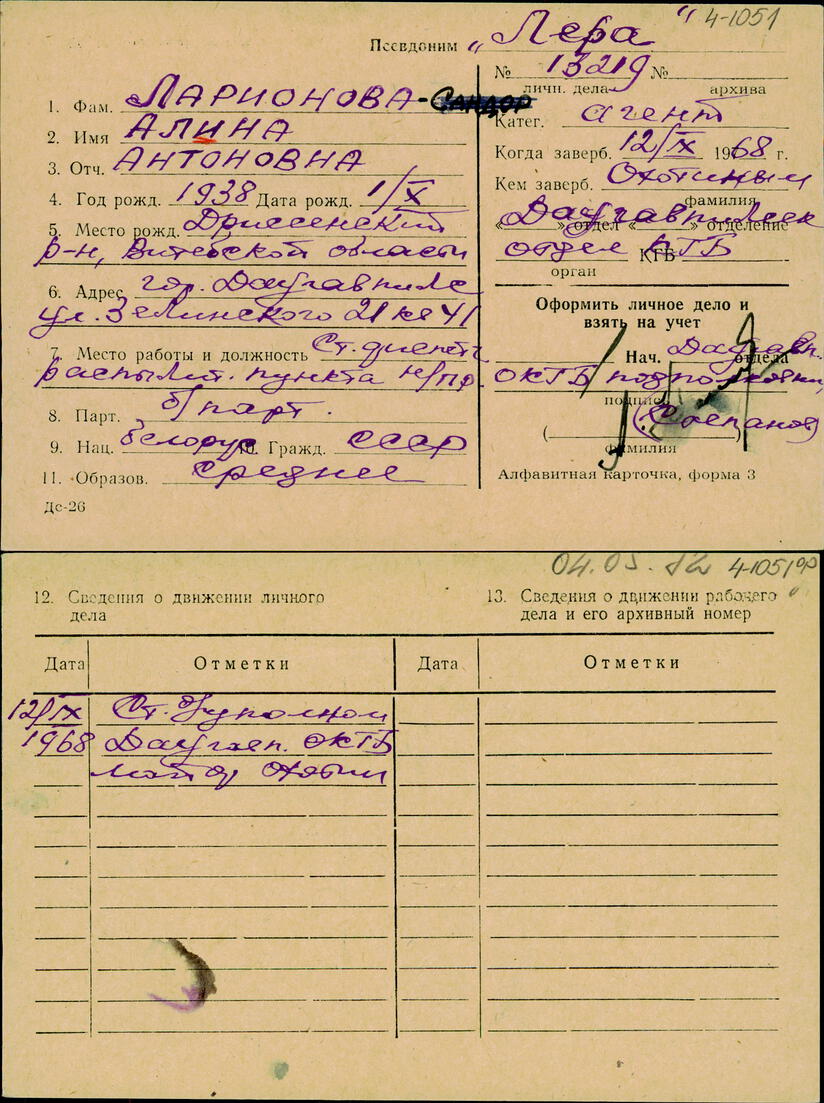 4-1051
Псевдоним „Лера"
№ 13219 №
личн. дела архива
1. Фам. ЛАРИОНОВА-
2. Имя АЛИНА
3. Отч. АНТОНОВНА
4. Год рожд. 1938 Дата рожд. 1/X
5. Место рожд. Дриссенский
р-н, Витебской области
6. Адрес гор. Даугавпилс
ул. Зелинского 21 кв 41
7. Место работы и должность Ст.
распылит. пункта
8. Парт. б/парт.
9. Нац. белорус 10. Гражд. СССР
11. Образов. среднее
Дс-26
Катег. агент
Когда заверб. 12/IX 1968 г.
Кем заверб. Охотиным
фамилия
« » отдел « » отделение
Даугавпилск
отдел КГБ КГБ
орган
Оформить личное дело и
взять на учет
Нач. Даугавп. отдела
ОКГБ подполковник
подпись
(Степанов)
фамилия
Алфавитная карточка, форма 3
04.05. 4-1051об
12. Сведения о движении личного
дела
13. Сведения о движении рабочего
дела и его архивный номер
Дата Отметки Дата Отметки
12/IX Ст. уполном
1968 Даугавп. ОКГБ
майор Охотин